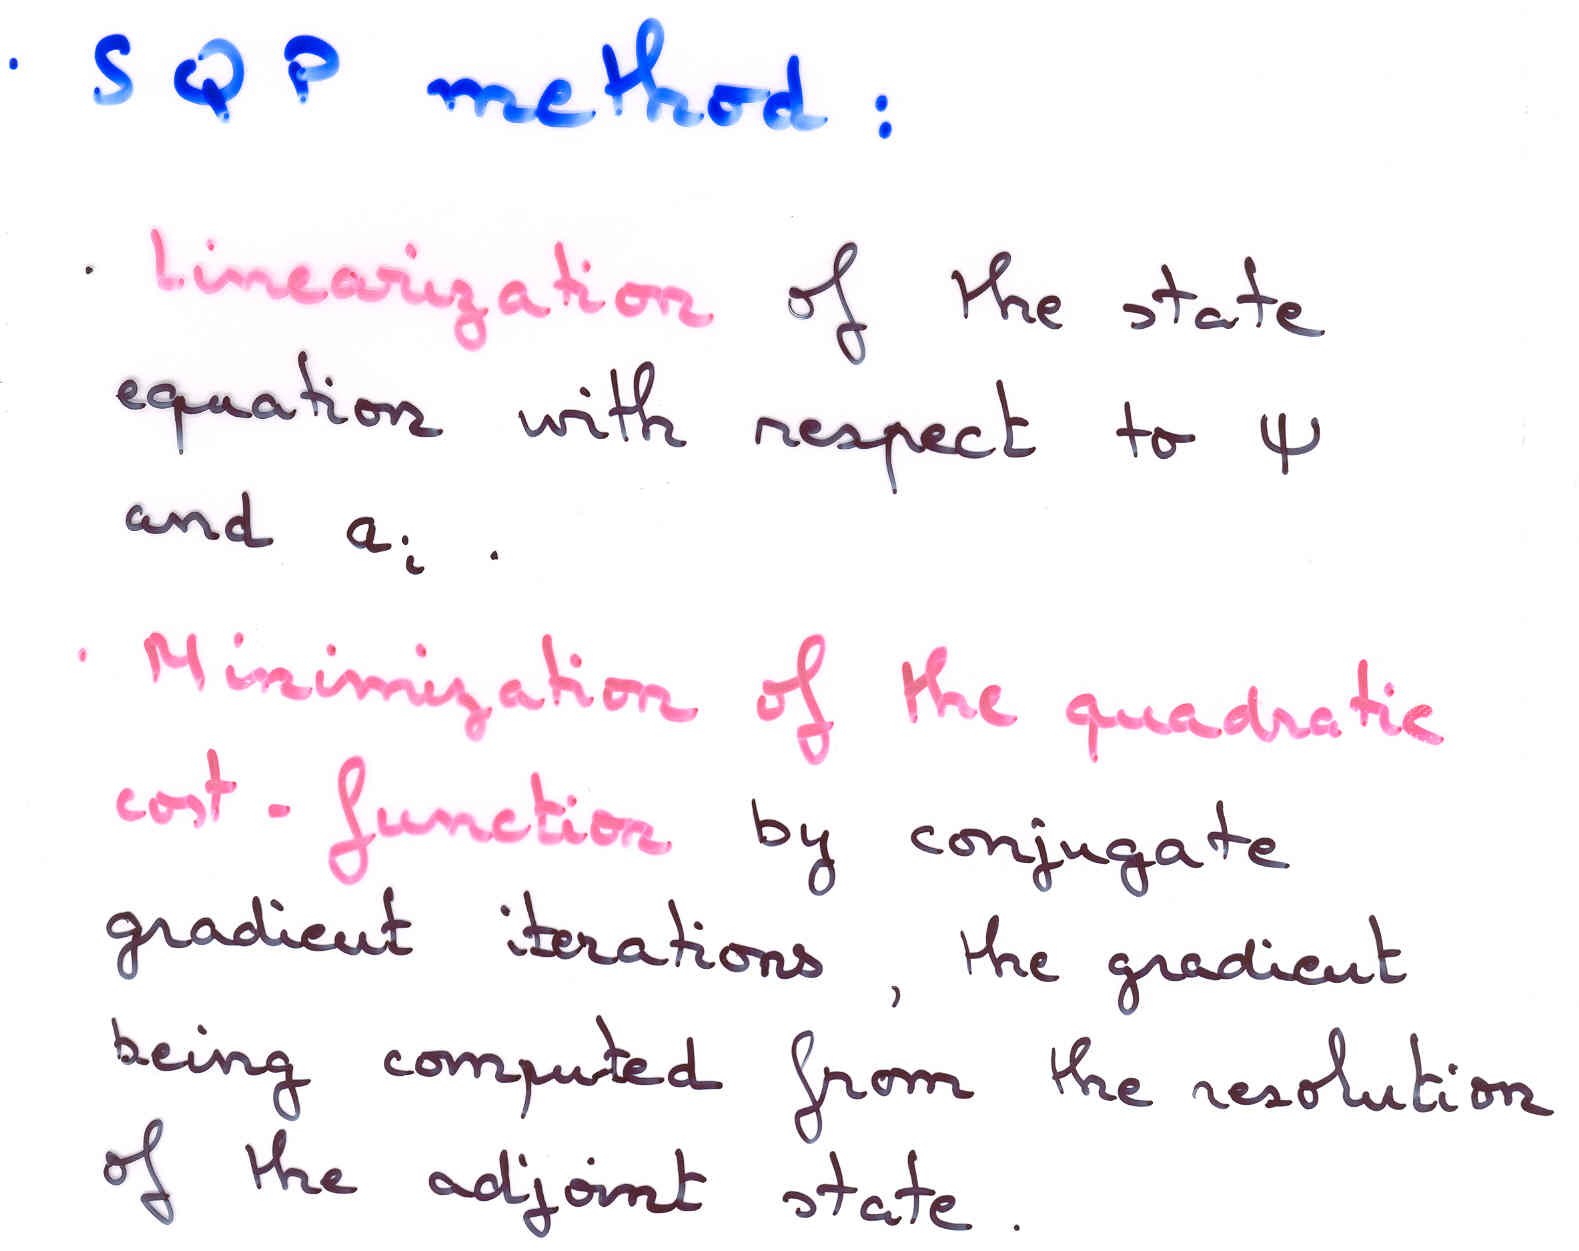 · SQP method :
· Linearization of the state
equation with respect to ψ
and aᵢ .
· Minimization of the quadratic
cost-function by conjugate
gradient iterations , the gradient
being computed from the resolution
of the adjoint state .